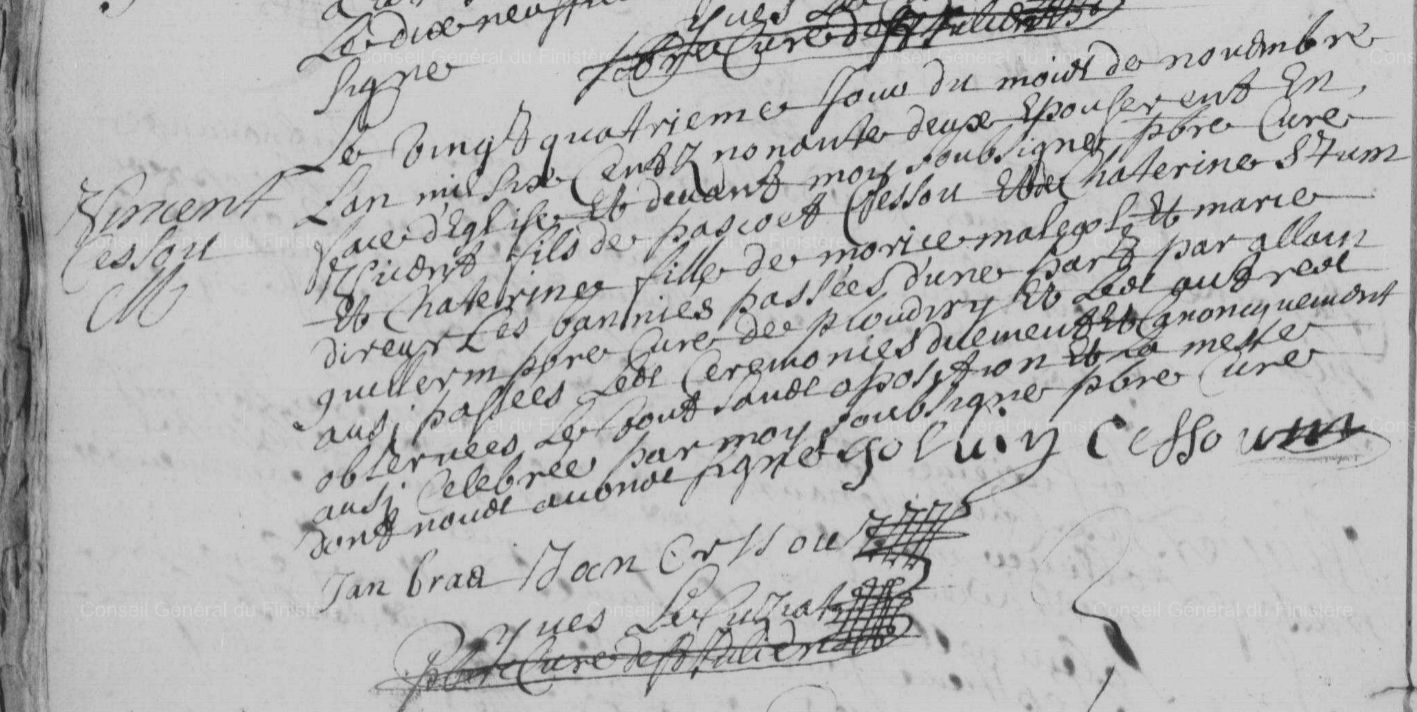 Le dixe neuf
signe
Yves Le
pbre Cure de st Julien
Le vingt quatrieme Jour du mois de novembre
Lan mil six Cent nonante deux Epouserent En
face d'Eglise Et devant moy soubsigne pbre Cure
Vincent fils de pascoet Cessou Et de Chaterine Stum
Et Chaterine fille de morice malegol Et marie
direur Les bannies passées d'une part par allain
guillerm pbre Cure de ploudiry Et Les autres
ausi passées Les Ceremonies duement Et Canonicquement
observées Le tout sans oposition Et La messe
ausi Celebrée par moy soubsigne pbre Cure
dont nous avons signe goluin Cessou
Vincent
Cessou
M
Jan bras Jan Cessou
Yves Le
pbre Cure de st Julien
Conseil Général du Finistère